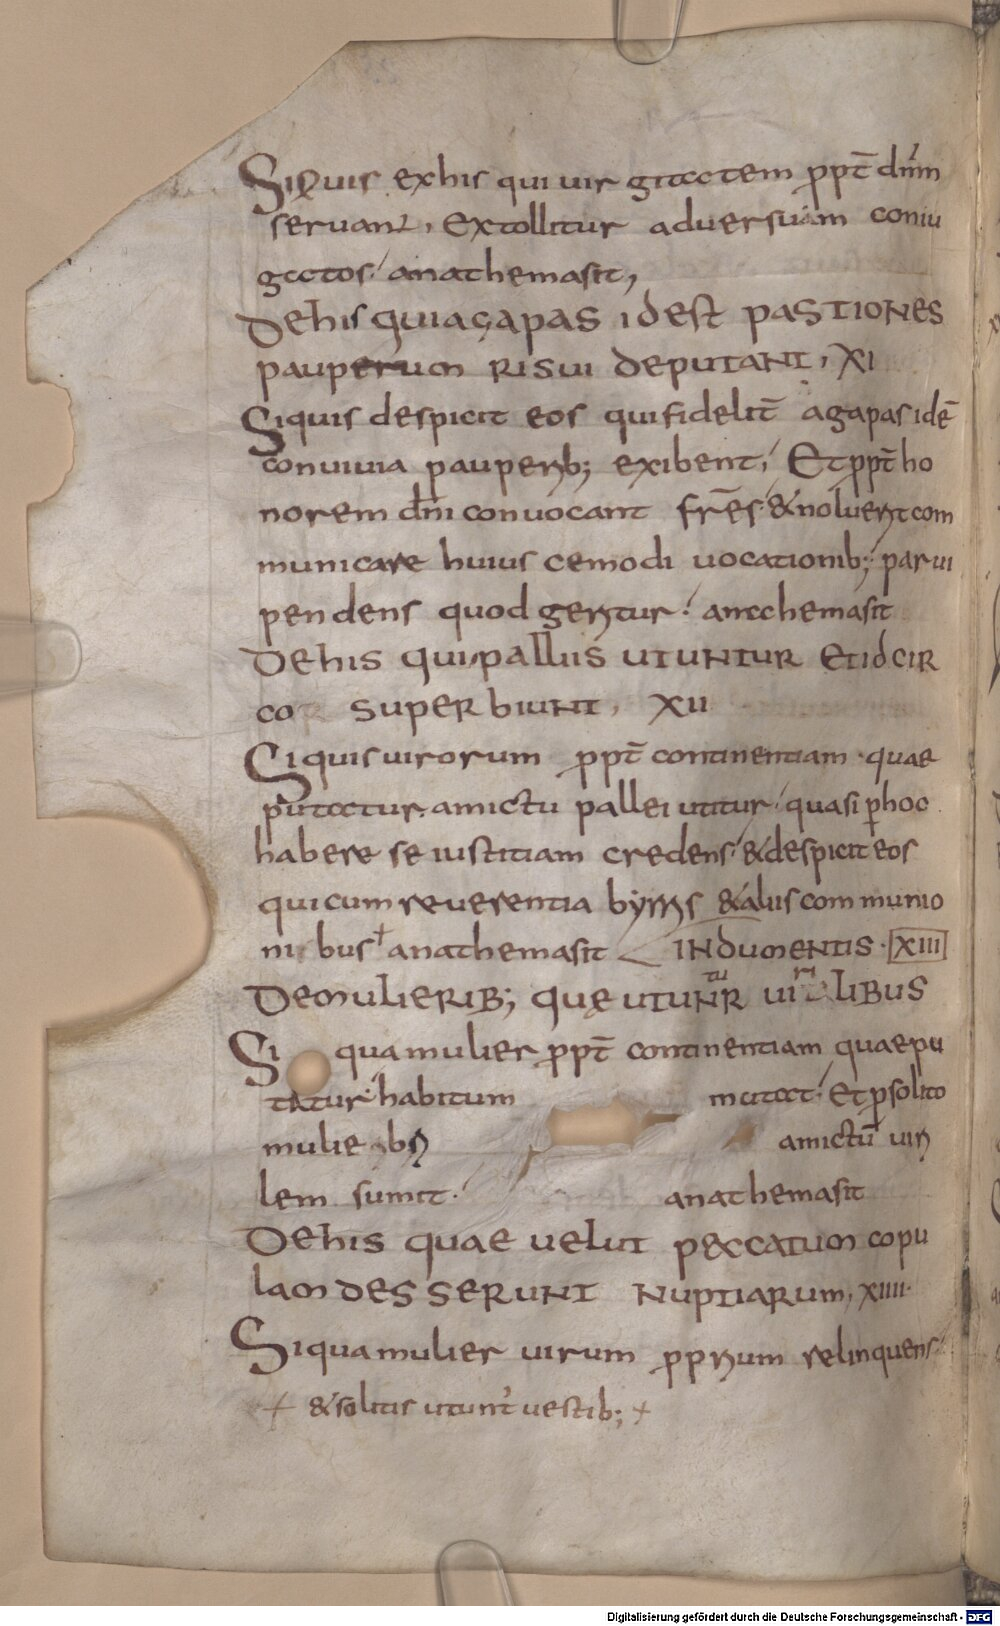 Siquis exhis qui uirginitatem ꝓpt̄ dn̄m
seruant, Extollitur aduersum coniu
gatos anathemasit,
Dehis quiagapas idest pastiones
pauperum risui deputant, XI
Siquis despicit eos quifidelit̄ agapas idē
conuiuia pauperib; exibent, Et ꝓpt̄ ho
norem dn̄i conuocant fr̄es & noluerit com
municare huius cemodi uocationib; parui
pendens quod geritur anathemasit
Dehis qui palliis utuntur et idcir
co superbiunt, XII
Siquis uirorum ꝓpt̄ continentiam quae
putatur amictu pallei utitur quasi ꝑ hoc
habere se iustitiam credens & despicit eos
qui cum reuerentia byrris & aliis commu nio
ni bus anathemasit indumentis · XIII
Demulierib; quę utuntur uirilibus
Si qua mulier ꝓpt̄ continentiam quaepu
tatur habitum mutat Et ꝓ solito
muliebri amictū uiri
lem sumit anathemasit
Dehis quae uelut peccatum copu
lam desserunt nuptiarum, XIIII
Siqua mulier uirum ꝓprium relinquens
& solitis utunt̄ uestib;
Digitalisierung gefördert durch die Deutsche Forschungsgemeinschaft - DFG